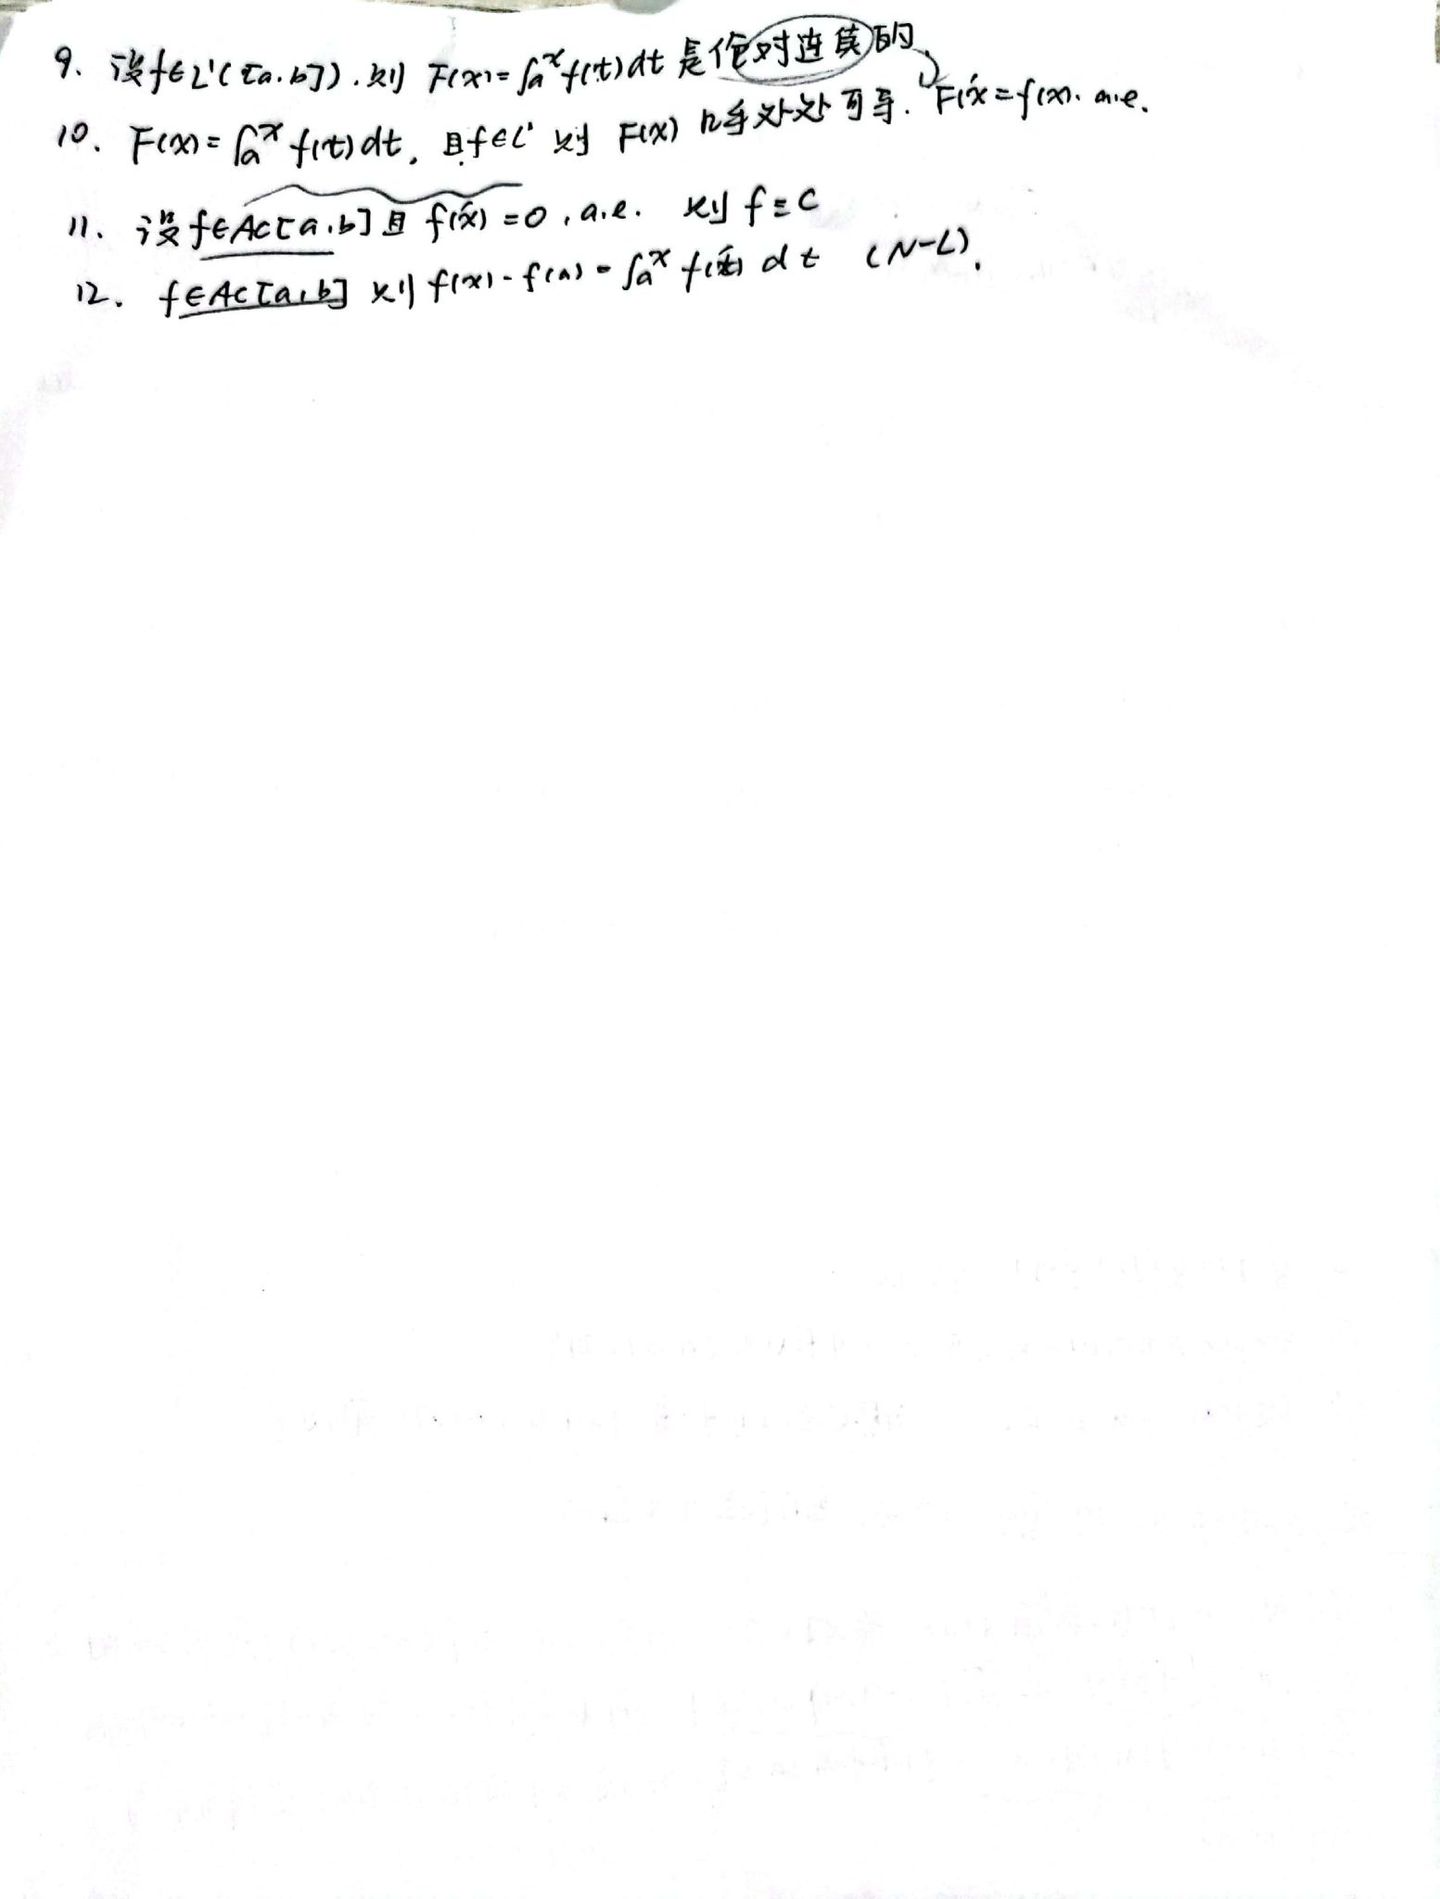 9. 设f∈L'([a.b]).则 F(x)=∫ₐˣf(t)dt 是绝对连续的
10. F(x)=∫ₐˣ f(t)dt, 且f∈L' 则 F(x) 几乎处处可导. F'(x)=f(x). a.e.
11. 设f∈AC[a.b]且 f'(x)=0, a.e. 则 f≡C
12. f∈AC[a,b] 则 f(x)-f(a)=∫ₐˣ f'(t) dt (N-L).